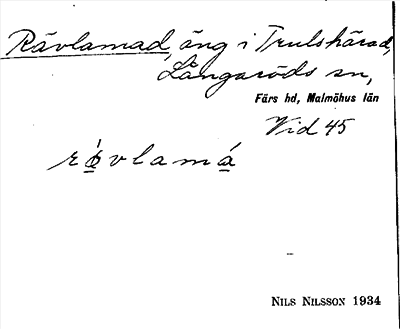 Rävlamad, äng i Trulshärad,
Långaröds sn,
Färs hd, Malmöhus län
Vid 45
Nils Nilsson 1934